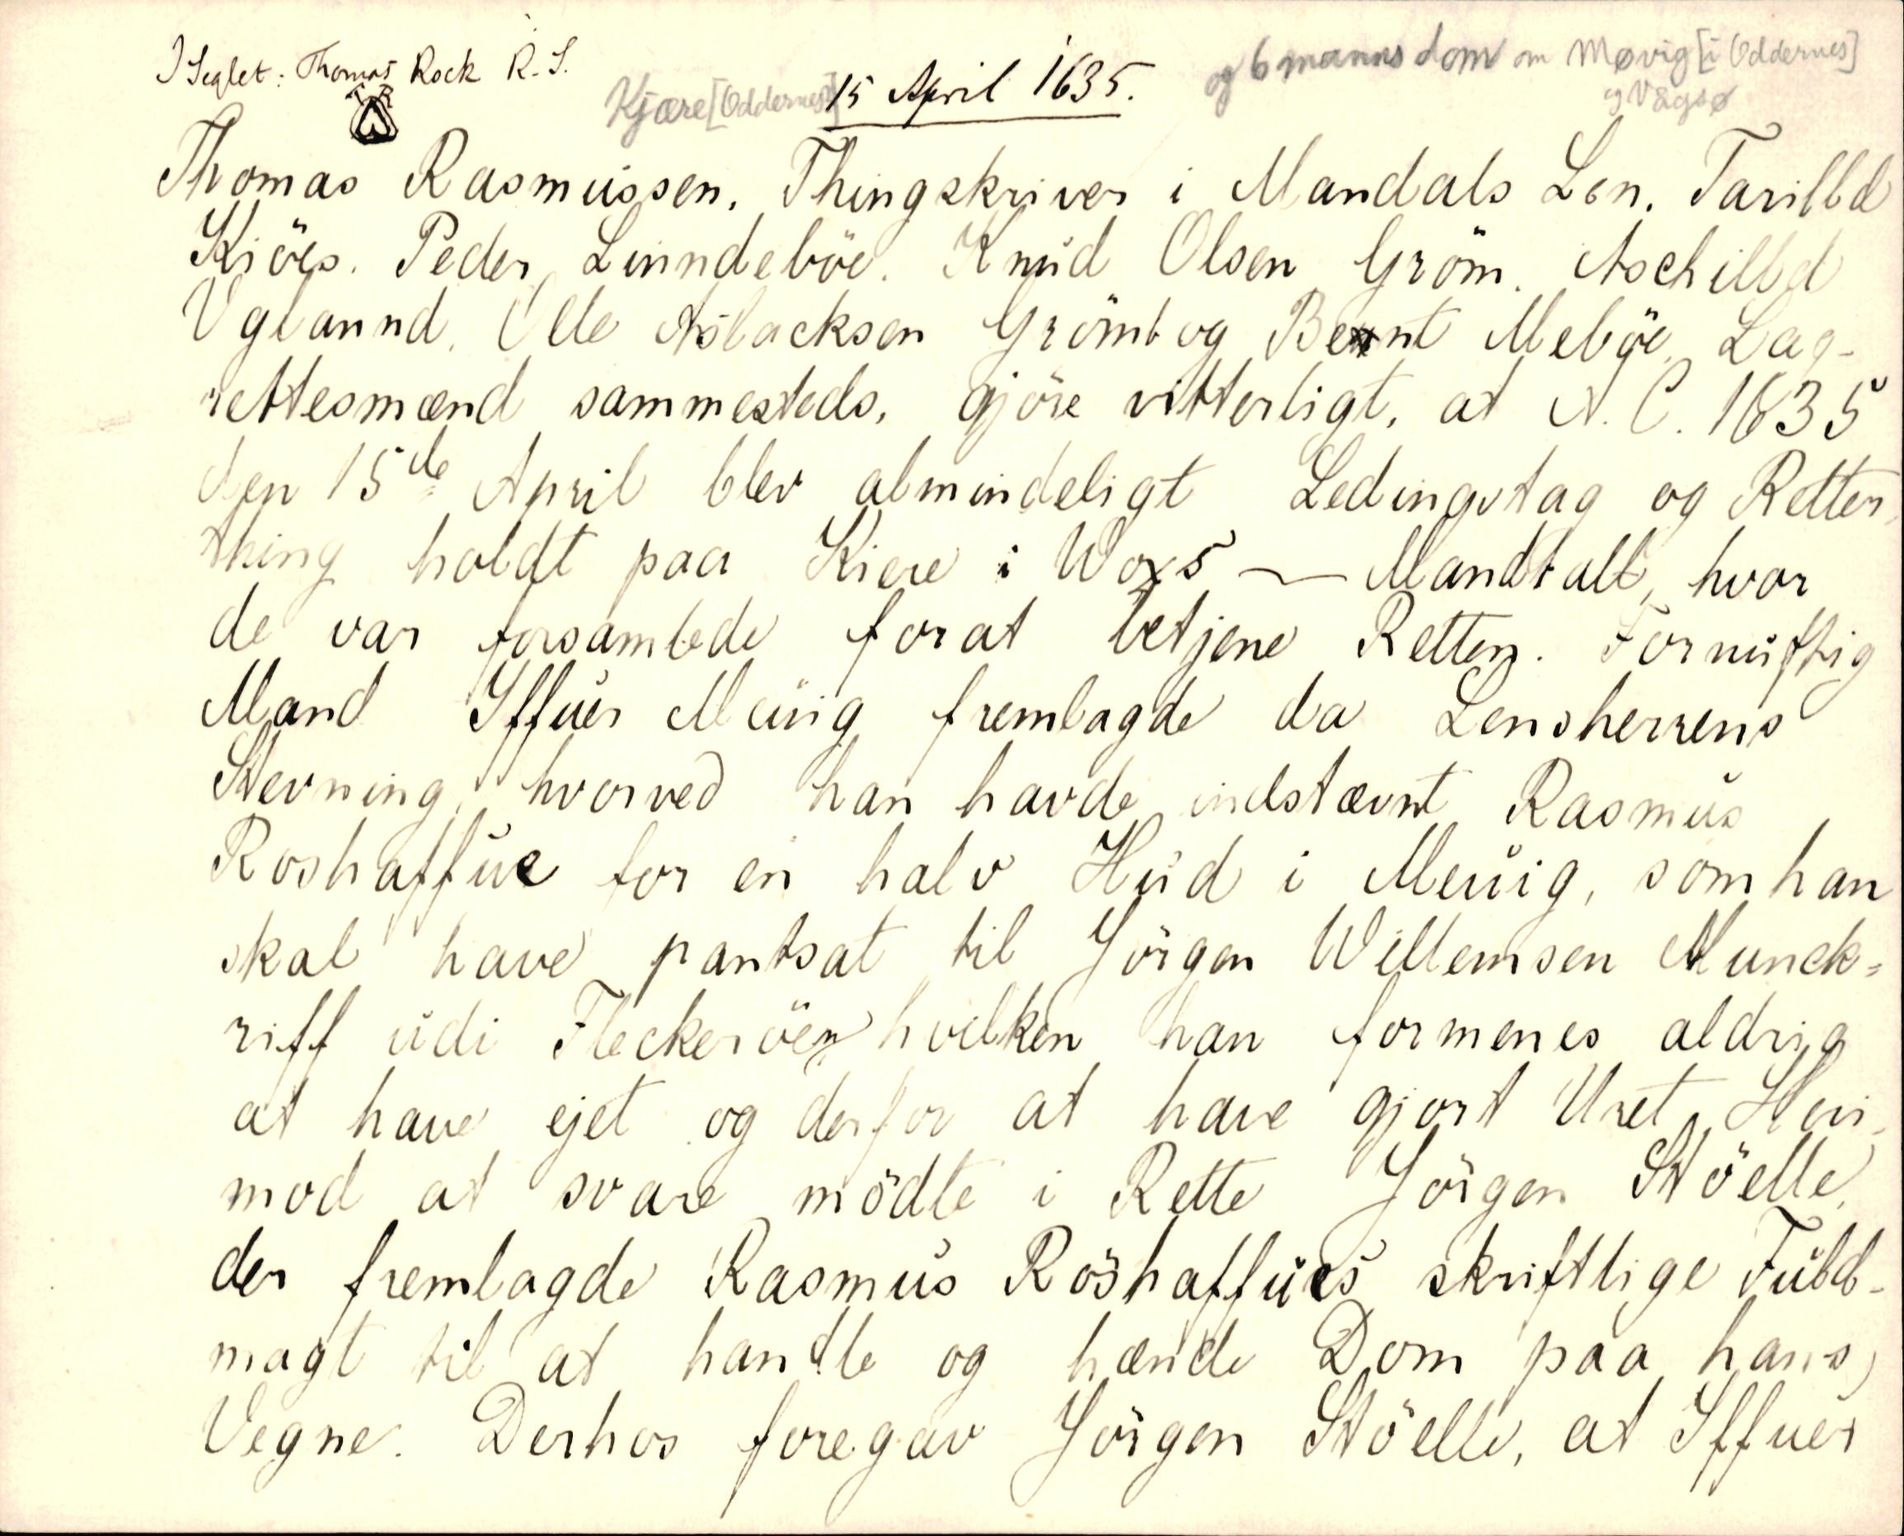 I Seglet: Thomas Rock R. S.
T R
Kjære [Oddernes] 15 April 1635.
og 6 manns dom om Møvig [i Oddernes]
og Vågsø
Thomas Rasmussen, Thingskriver i Mandals Len, Tarilld
Kiöes. Peder Linndeböe. Knud Olsen Gröm. Aschilld
Uglannd. Olle Aslacksen Grömb og Bernt Meböe, Lag-
rettesmænd sammesteds, gjöre vitterligt, at A. C. 1635
den 15de April blev almindeligt Ledingstag og Retter-
thing holdt paa Kiere i Woxs — Mandtall, hvor
de var forsamlede forat betjene Retten. Fornuftig
Mand Iffuer Meüig fremlagde da Lensherrens
Stevning, hvorved han havde indstævnt Rasmus
Roshaffue for en halv Hud i Meüig, som han
skal have pantsat til Jörgen Willemsen Munck-
riff udi Fleckeröen hvilken han formenes aldrig
at have ejet og derfor at have gjort Uret. Heri-
mod at svare mödte i Rette Jörgen Stöelle,
der fremlagde Rasmus Röshaffues skriftlige Fuld-
magt til at handle og hænde Dom paa hans
Vegne. Derhos foregav Jörgen Stöelle, at Iffuer